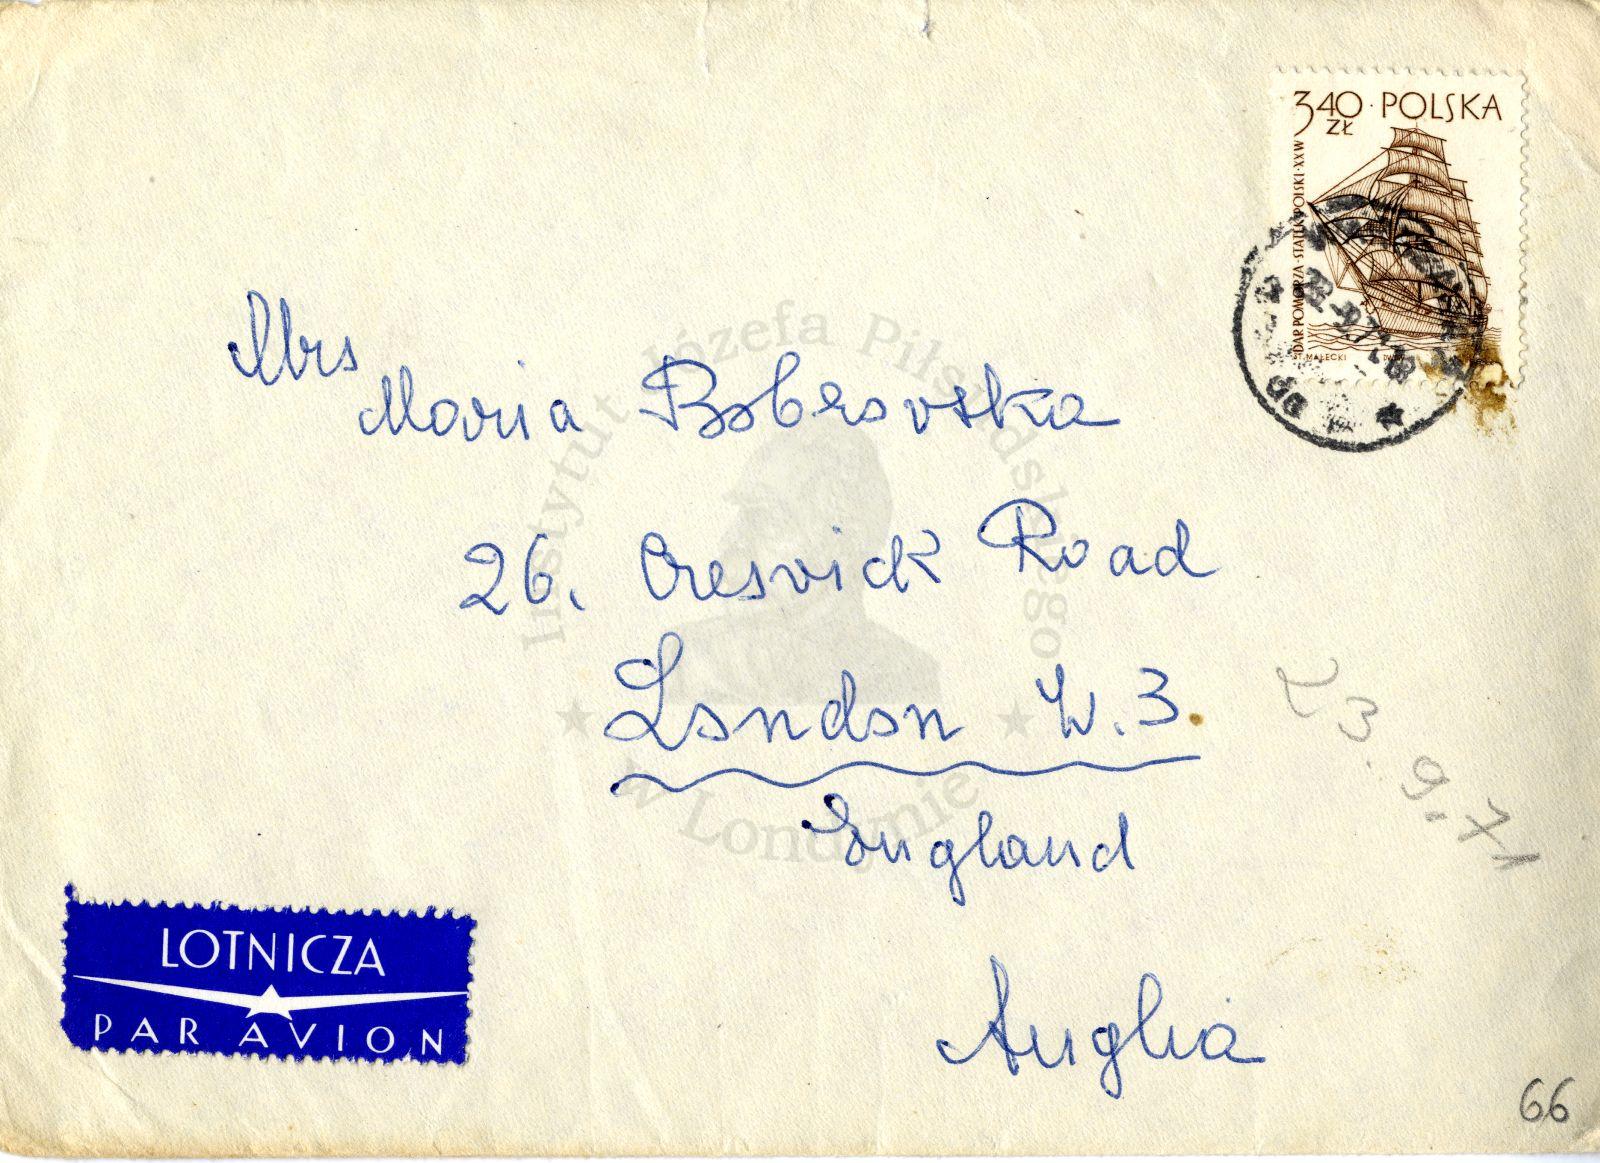 3,40 ZŁ · POLSKA
DAR POMORZA · STATEK POLSKI · XX W
ST. MAŁECKI
Mrs
Maria Bobrovska
26. Cresvick Road
London W. 3.
England
Anglia
23. 9. 71
LOTNICZA
PAR AVION
66
Instytut Józefa Piłsudskiego
w Londynie